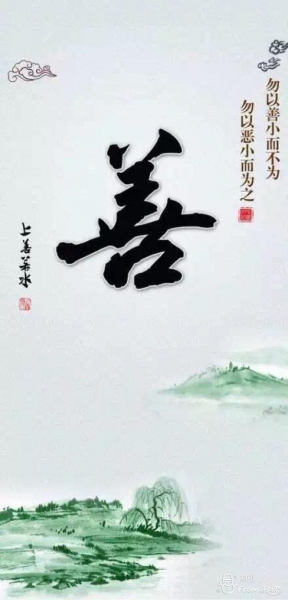 勿以善小而不为
勿以恶小而为之
善
上善若水